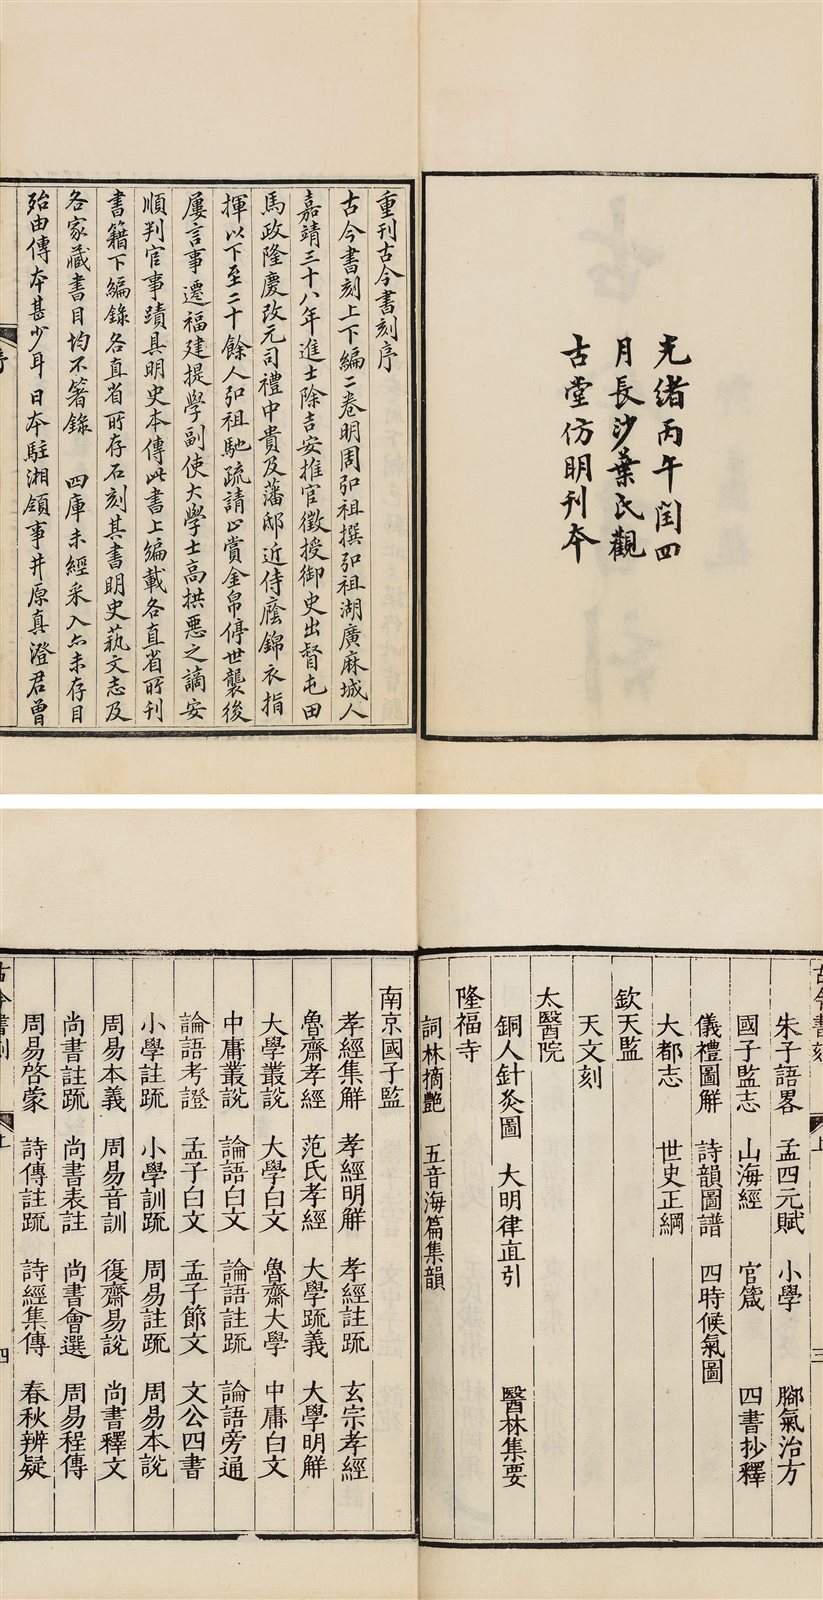 光緒丙午閏四
月長沙葉氏觀
古堂仿明刊本
重刊古今書刻序
古今書刻上下編二卷明周弘祖撰弘祖湖廣麻城人
嘉靖三十八年進士除吉安推官徵授御史出督屯田
馬政隆慶改元司禮中貴及藩邸近侍廕錦衣指
揮以下至二十餘人弘祖馳疏請止賞金帛停世襲後
屢言事遷福建提學副使大學士高拱惡之謫安
順判官事蹟具明史本傳此書上編載各直省所刊
書籍下編錄各直省所存石刻其書明史藝文志及
各家藏書目均不箸錄 四庫未經采入亦未存目
殆由傳本甚少耳日本駐湘領事井原真澄君曾
序
古今書刻 上 三
朱子語畧 孟四元賦 小學 腳氣治方
國子監志 山海經 官箴 四書抄釋
儀禮圖解 詩韻圖譜 四時候氣圖
大都志 世史正綱
欽天監
天文刻
太醫院
銅人針灸圖 大明律直引 醫林集要
隆福寺
詞林摘艷 五音海篇集韻
南京國子監
孝經集解 孝經明解 孝經註疏 玄宗孝經
魯齋孝經 范氏孝經 大學疏義 大學明解
大學叢說 大學白文 魯齋大學 中庸白文
中庸叢說 論語白文 論語註疏 論語旁通
論語考證 孟子白文 孟子節文 文公四書
小學註疏 小學訓疏 周易註疏 周易本說
周易本義 周易音訓 復齋易說 尚書釋文
尚書註疏 尚書表註 尚書會選 周易程傳
周易啓蒙 詩傳註疏 詩經集傳 春秋辨疑
古今書刻 上 四